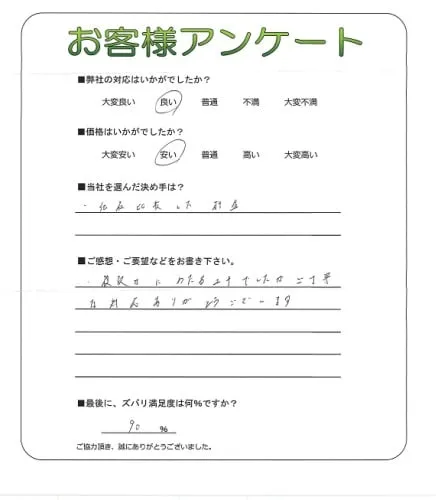 お客様アンケート
■弊社の対応はいかがでしたか？
大変良い 良い 普通 不満 大変不満
■価格はいかがでしたか？
大変安い 安い 普通 高い 大変高い
■当社を選んだ決め手は？
・他店比較した結果
■ご感想・ご要望などをお書き下さい。
・複数回にわたる工事でしたがご丁寧
な対応ありがとうございます
■最後に、ズバリ満足度は何％ですか？
90 ％
ご協力頂き、誠にありがとうございました。